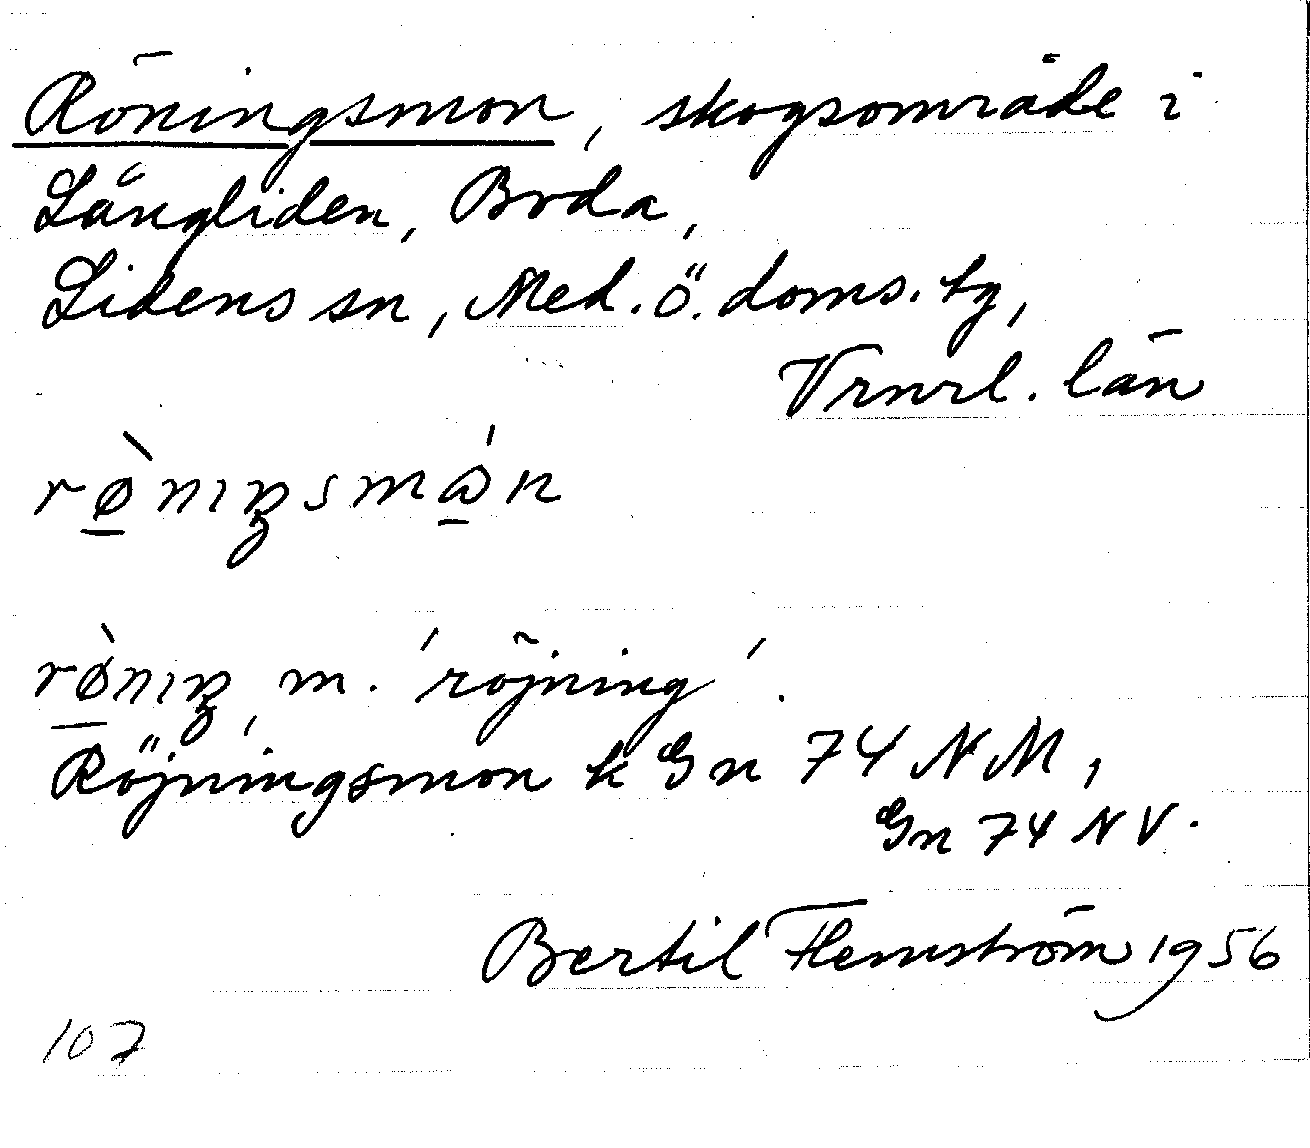 Röningsmon, skogsområde i
Långliden, Boda,
Lidens sn, Med. ö. doms. tg,
Vrnrl. län
rø̀niŋsmɷ́n
rø̀niŋ, m. 'röjning'.
Röjningsmon k Gn 74 NM,
Gn 74 NV.
Bertil Flemström 1956
107